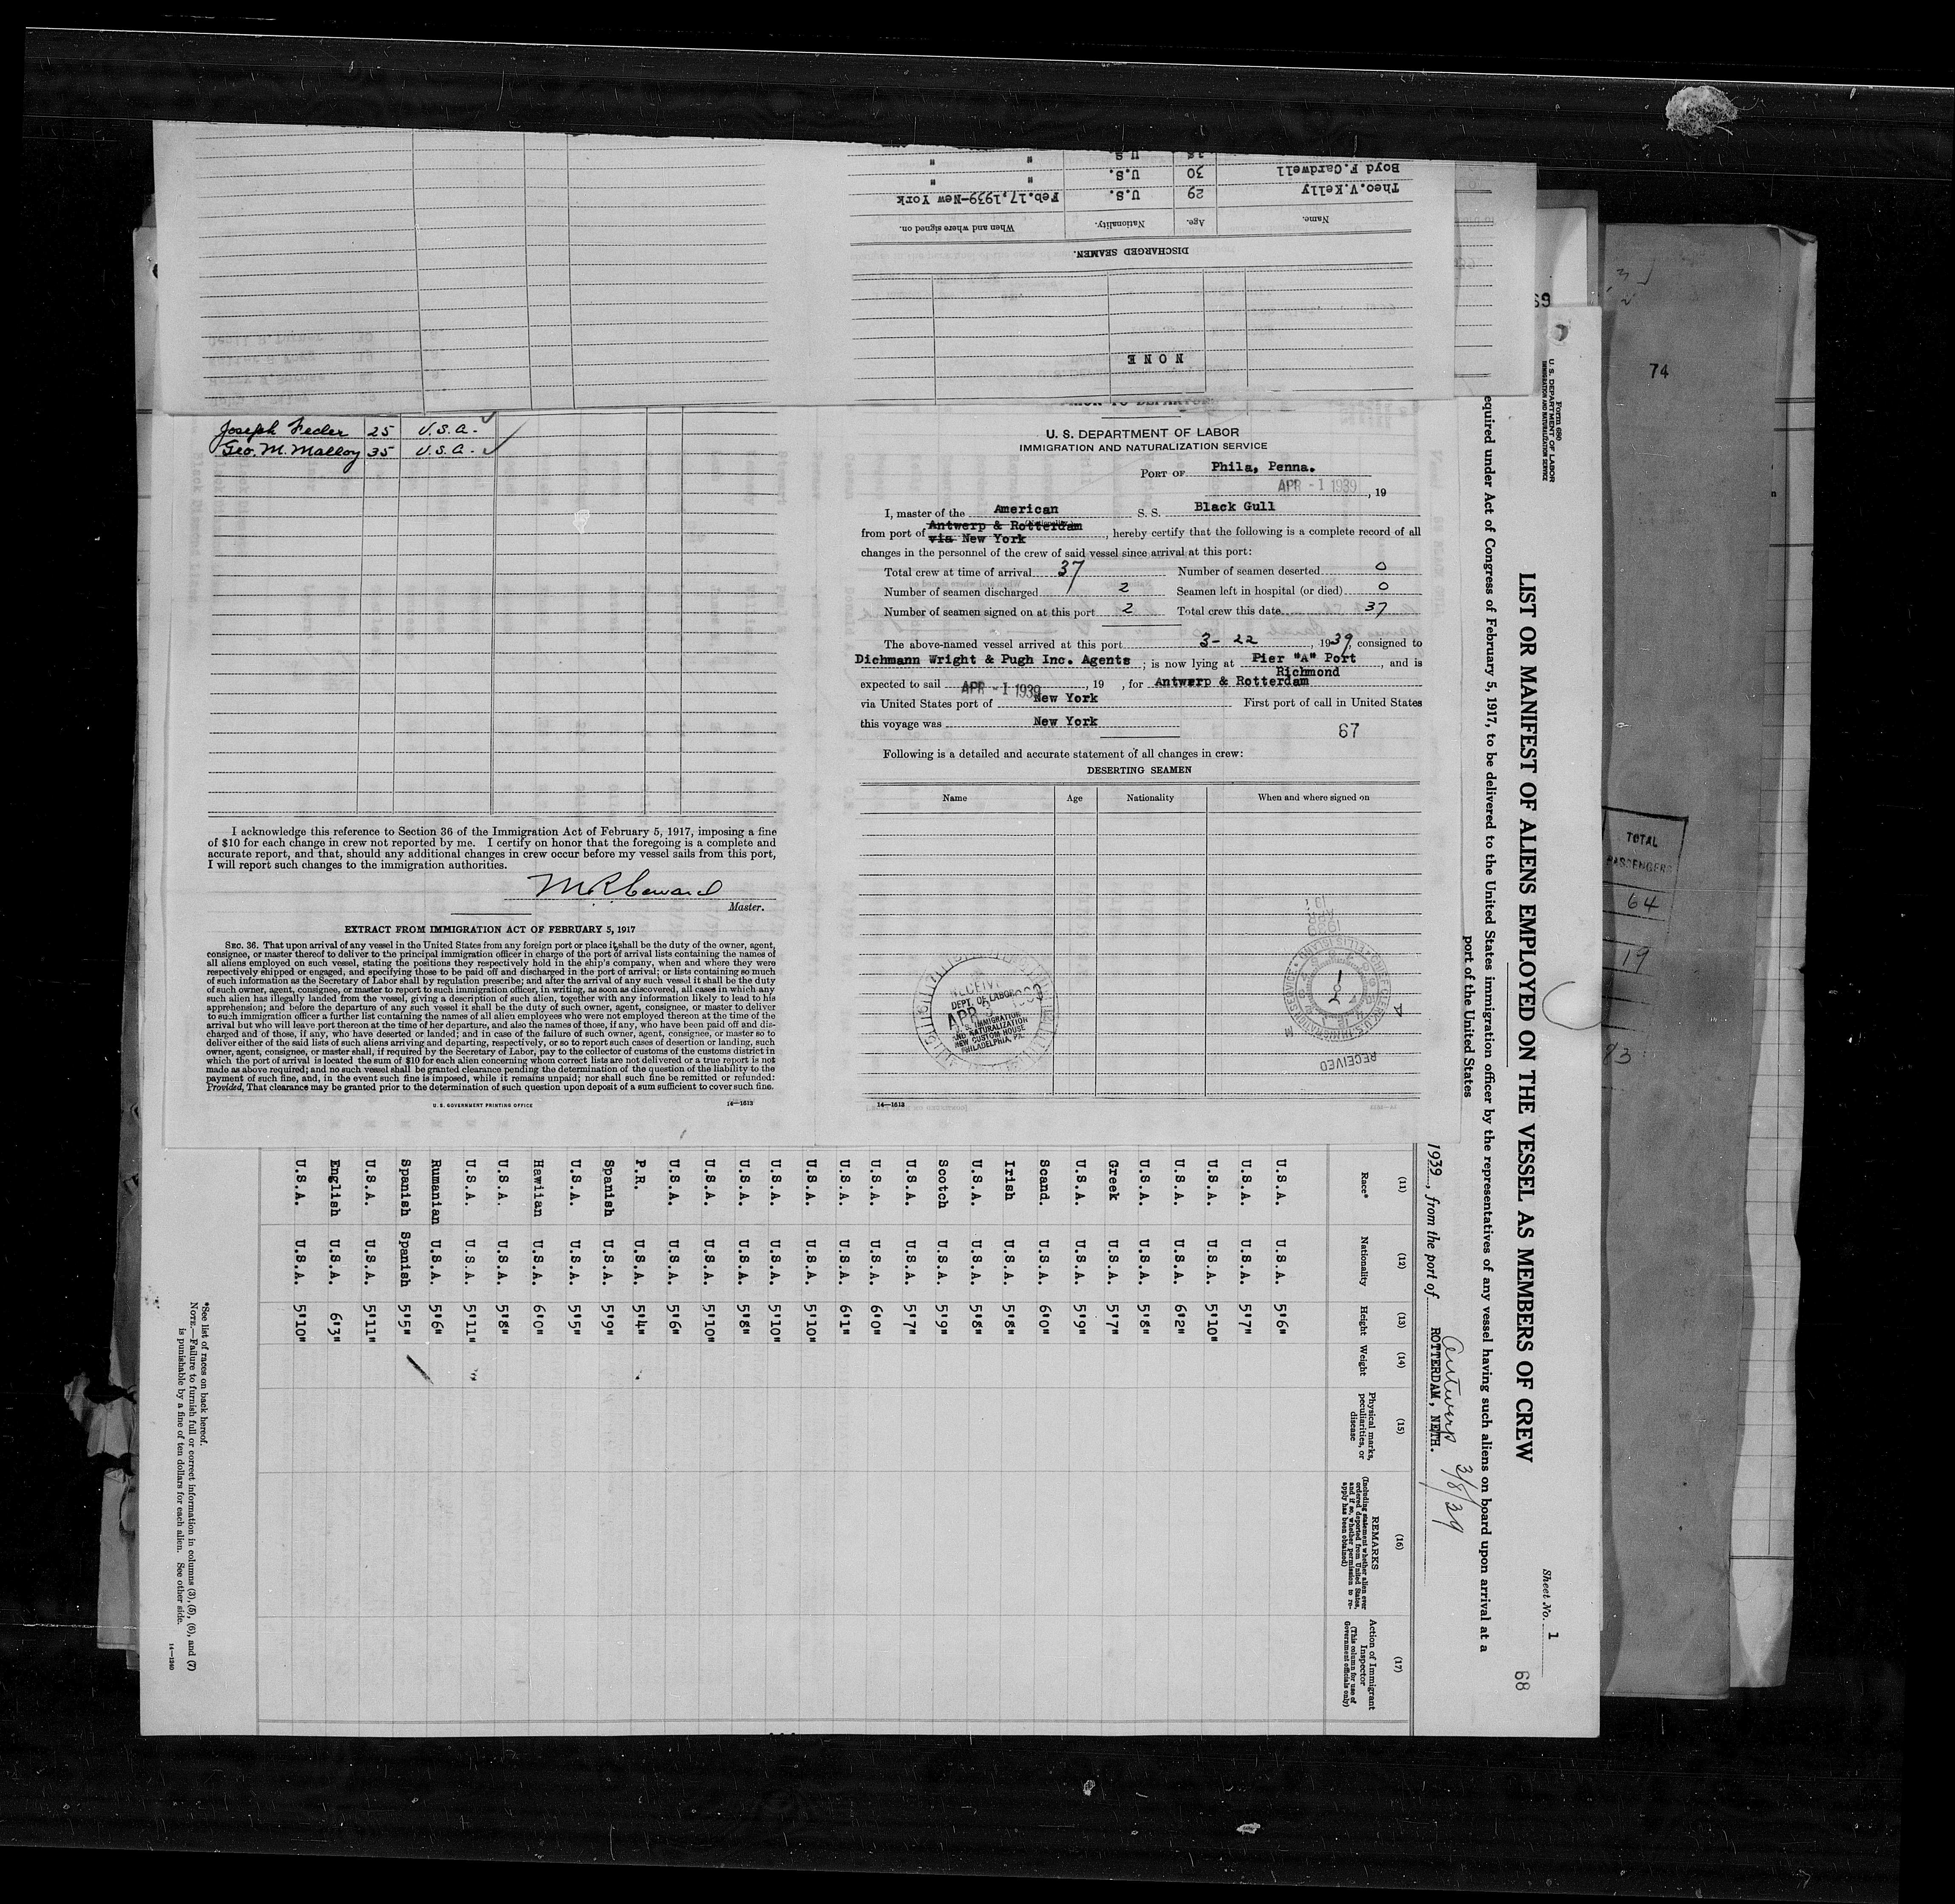 Joseph Fecler 25 U.S.A.
Geo. M. Malloy 35 U.S.A.
I acknowledge this reference to Section 36 of the Immigration Act of February 5, 1917, imposing a fine
of $10 for each change in crew not reported by me. I certify on honor that the foregoing is a complete and
accurate report, and that, should any additional changes in crew occur before my vessel sails from this port,
I will report such changes to the immigration authorities.
Master.
EXTRACT FROM IMMIGRATION ACT OF FEBRUARY 5, 1917
SEC. 36. That upon arrival of any vessel in the United States from any foreign port or place it shall be the duty of the owner, agent,
consignee, or master thereof to deliver to the principal immigration officer in charge of the port of arrival lists containing the names of
all aliens employed on such vessel, stating the positions they respectively hold in the ship's company, when and where they were
respectively shipped or engaged, and specifying those to be paid off and discharged in the port of arrival; or lists containing so much
of such information as the Secretary of Labor shall by regulation prescribe; and after the arrival of any such vessel it shall be the duty
of such owner, agent, consignee, or master to report to such immigration officer, in writing, as soon as discovered, all cases in which any
such alien has illegally landed from the vessel, giving a description of such alien, together with any information likely to lead to his
apprehension; and before the departure of any such vessel it shall be the duty of such owner, agent, consignee, or master to deliver
to such immigration officer a further list containing the names of all alien employees who were not employed thereon at the time of the
arrival but who will leave port thereon at the time of her departure, and also the names of those, if any, who have been paid off and dis-
charged and of those, if any, who have deserted or landed; and in case of the failure of such owner, agent, consignee, or master so to
deliver either of the said lists of such aliens arriving and departing, respectively, or so to report such cases of desertion or landing, such
owner, agent, consignee, or master shall, if required by the Secretary of Labor, pay to the collector of customs of the customs district in
which the port of arrival is located the sum of $10 for each alien concerning whom correct lists are not delivered or a true report is not
made as above required; and no such vessel shall be granted clearance pending the determination of the question of the liability to the
payment of such fine, and, in the event such fine is imposed, while it remains unpaid; nor shall such fine be remitted or refunded:
Provided, That clearance may be granted prior to the determination of such question upon deposit of a sum sufficient to cover such fine.
U. S. GOVERNMENT PRINTING OFFICE 14—1613
NONE
DISCHARGED SEAMEN.
Name. Age. Nationality. When and where signed on.
Theo.V.Kelly 29 U.S. Feb.17,1939-New York
Boyd F.Cardwell 30 U.S. " "
U.S. " "
U. S. DEPARTMENT OF LABOR
IMMIGRATION AND NATURALIZATION SERVICE
PORT OF Phila, Penna.
APR -1 1939, 19
I, master of the American S. S. Black Gull
from port of Antwerp & Rotterdam via New York, hereby certify that the following is a complete record of all
changes in the personnel of the crew of said vessel since arrival at this port:
Total crew at time of arrival 37 Number of seamen deserted 0
Number of seamen discharged 2 Seamen left in hospital (or died) 0
Number of seamen signed on at this port 2 Total crew this date 37
The above-named vessel arrived at this port 3-22, 1939, consigned to
Dichmann Wright & Pugh Inc. Agents; is now lying at Pier "A" Port Richmond, and is
expected to sail APR -1 1939, 19 , for Antwerp & Rotterdam
via United States port of New York First port of call in United States
this voyage was New York
67
Following is a detailed and accurate statement of all changes in crew:
DESERTING SEAMEN
Name Age Nationality When and where signed on
RECEIVED
DEPT. OF LABOR
APR
U.S. IMMIGRATION
AND NATURALIZATION
NEW CUSTOM HOUSE
PHILADELPHIA, PA.
RECEIVED
14—1613
Form 680
U. S. DEPARTMENT OF LABOR
IMMIGRATION AND NATURALIZATION SERVICE
Sheet No. 1
68
LIST OR MANIFEST OF ALIENS EMPLOYED ON THE VESSEL AS MEMBERS OF CREW
equired under Act of Congress of February 5, 1917, to be delivered to the United States immigration officer by the representatives of any vessel having such aliens on board upon arrival at a
port of the United States
1939, from the port of ROTTERDAM, NETH. Antwerp 3/8/39
(11) (12) (13) (14) (15) (16) (17)
Race* Nationality Height Weight Physical marks, peculiarities, or disease REMARKS (Including statement whether alien ever ordered deported from United States, and if so, whether permission to re-apply has been obtained) Action of Immigrant Inspector (This column for use of Government officials only)
U.S.A. U.S.A. 5'6"
U.S.A. U.S.A. 5'7"
U.S.A. U.S.A. 5'10"
U.S.A. U.S.A. 6'2"
U.S.A. U.S.A. 5'8"
Greek U.S.A. 5'7"
U.S.A. U.S.A. 5'9"
Scand. U.S.A. 6'0"
Irish U.S.A. 5'8"
U.S.A. U.S.A. 5'8"
Scotch U.S.A. 5'9"
U.S.A. U.S.A. 5'7"
U.S.A. U.S.A. 6'0"
U.S.A. U.S.A. 6'1"
U.S.A. U.S.A. 5'10"
U.S.A. U.S.A. 5'10"
U.S.A. U.S.A. 5'8"
U.S.A. U.S.A. 5'10"
U.S.A. U.S.A. 5'6"
P.R. U.S.A. 5'4"
Spanish U.S.A. 5'9"
U.S.A. U.S.A. 5'5"
Hawiian U.S.A. 6'0"
U.S.A. U.S.A. 5'8"
U.S.A. U.S.A. 5'11"
Rumanian U.S.A. 5'6"
Spanish Spanish 5'5"
U.S.A. U.S.A. 5'11"
English U.S.A. 6'3"
U.S.A. U.S.A. 5'10"
*See list of races on back hereof.
NOTE.—Failure to furnish full or correct information in columns (3), (5), (6), and (7)
is punishable by a fine of ten dollars for each alien. See other side.
14—1240
69
74
TOTAL
PASSENGERS
64
19
93